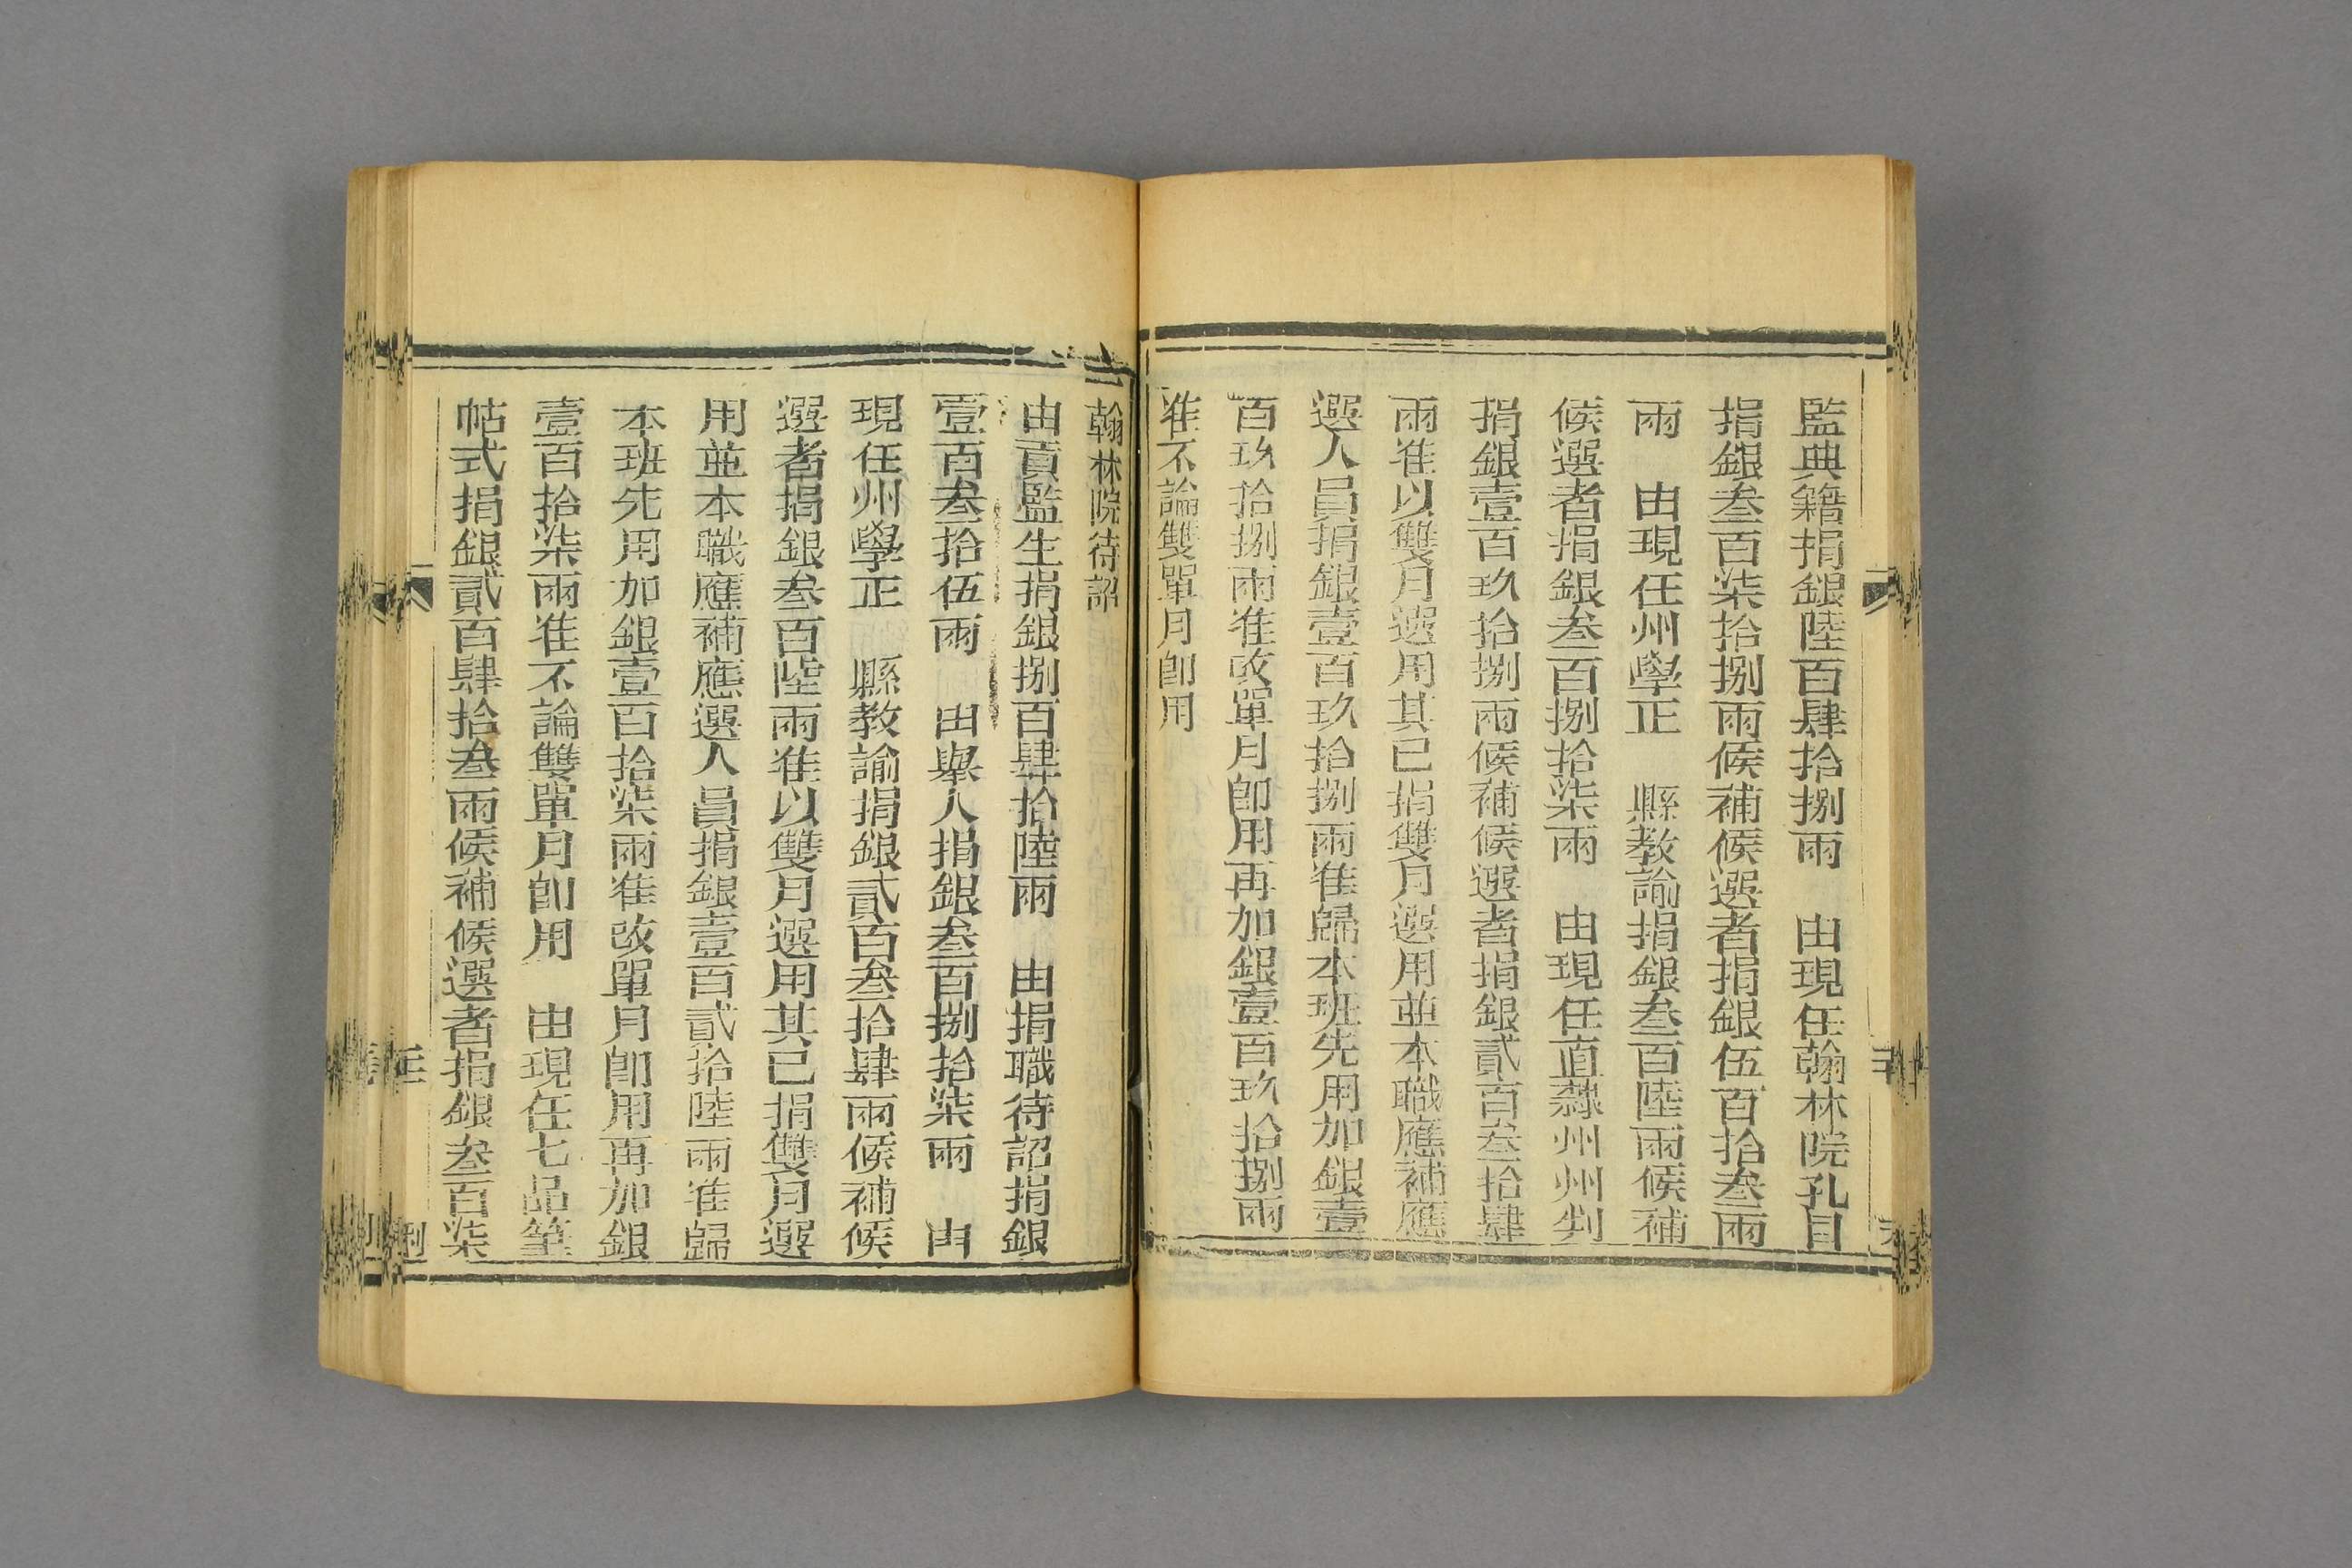 監典籍捐銀陸百肆拾捌兩　由現任翰林院孔目
捐銀叁百柒拾捌兩候補候選者捐銀伍百拾叁兩
兩　由現任州學正　縣教諭捐銀叁百陸兩候補
候選者捐銀叁百捌拾柒兩　由現任直隸州州判
捐銀壹百玖拾捌兩候補候選者捐銀貳百叁拾肆
兩准以雙月選用其已捐雙月選用並本職應補應
選人員捐銀壹百玖拾捌兩准歸本班先用加銀壹
百玖拾捌兩准改單月卽用再加銀壹百玖拾捌兩
准不論雙單月卽用
翰林院待詔
由貢監生捐銀捌百肆拾陸兩　由捐職待詔捐銀
壹百叁拾伍兩　由舉人捐銀叁百捌拾柒兩　由
現任州學正　縣教諭捐銀貳百叁拾肆兩候補候
選者捐銀叁百陸兩准以雙月選用其已捐雙月選
用並本職應補應選人員捐銀壹百貳拾陸兩准歸
本班先用加銀壹百拾柒兩准改單月卽用再加銀
壹百拾柒兩准不論雙單月卽用　由現任七品筆
帖式捐銀貳百肆拾叁兩候補候選者捐銀叁百柒